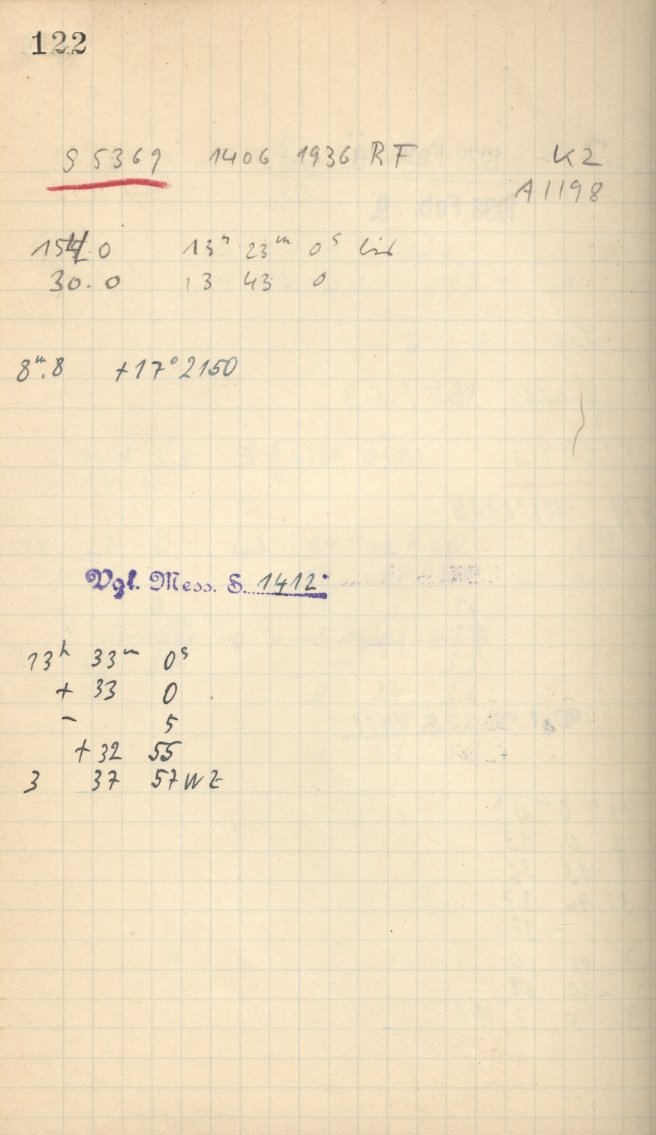 122
S 5369 1406 1936 RF K2
A 1198
15 0 13ʰ 23ᵐ 0ˢ
30.0 13 43 0
8ᵐ.8 +17° 2150
Vgl. Mess. S. 1412
13ʰ 33ᵐ 0ˢ
+ 33 0
- 5
+ 32 55
3 37 57 WZ